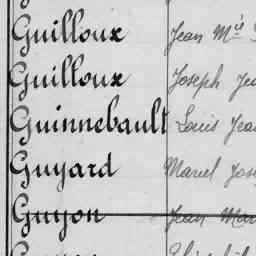 Guilloux Jean Mie
Guilloux Joseph Jea
Guinnebault Louis Jea
Guyard Marcel Jose
Guyon Jean Mar